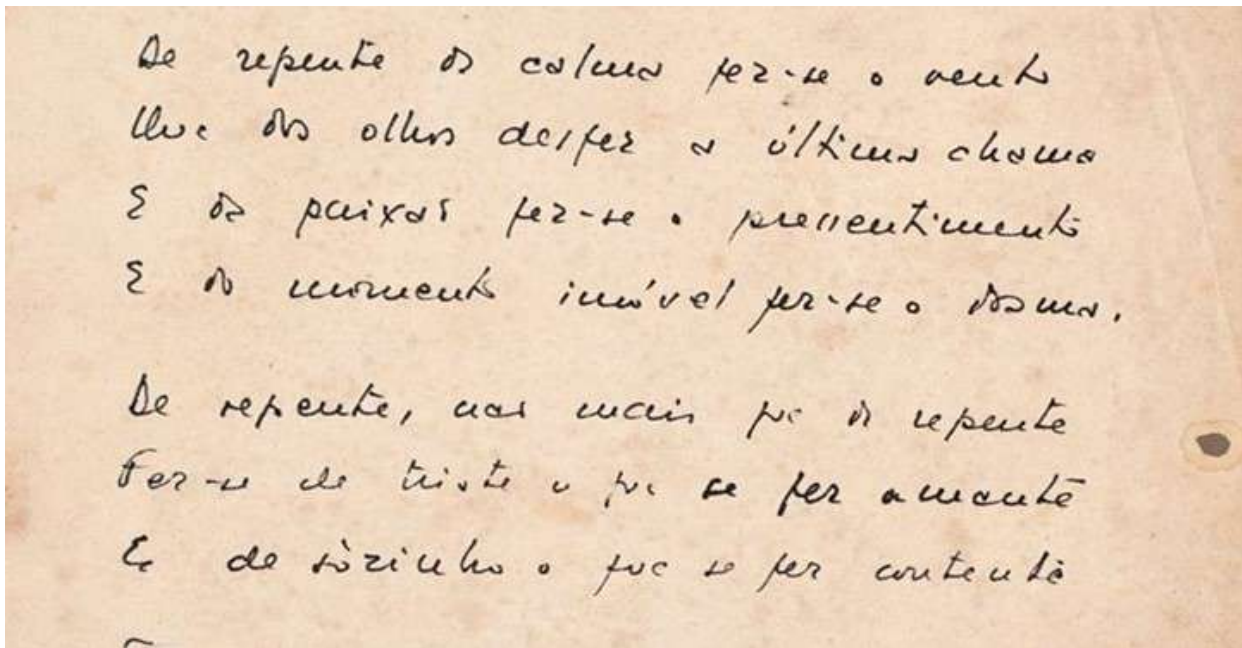 De repente da calma fez-se o vento
Que dos olhos desfez a última chama
E da paixão fez-se o pressentimento
E do momento imóvel fez-se o drama.
De repente, não mais que de repente
Fez-se de triste o que se fez amante
E de sòzinho o que se fez contente